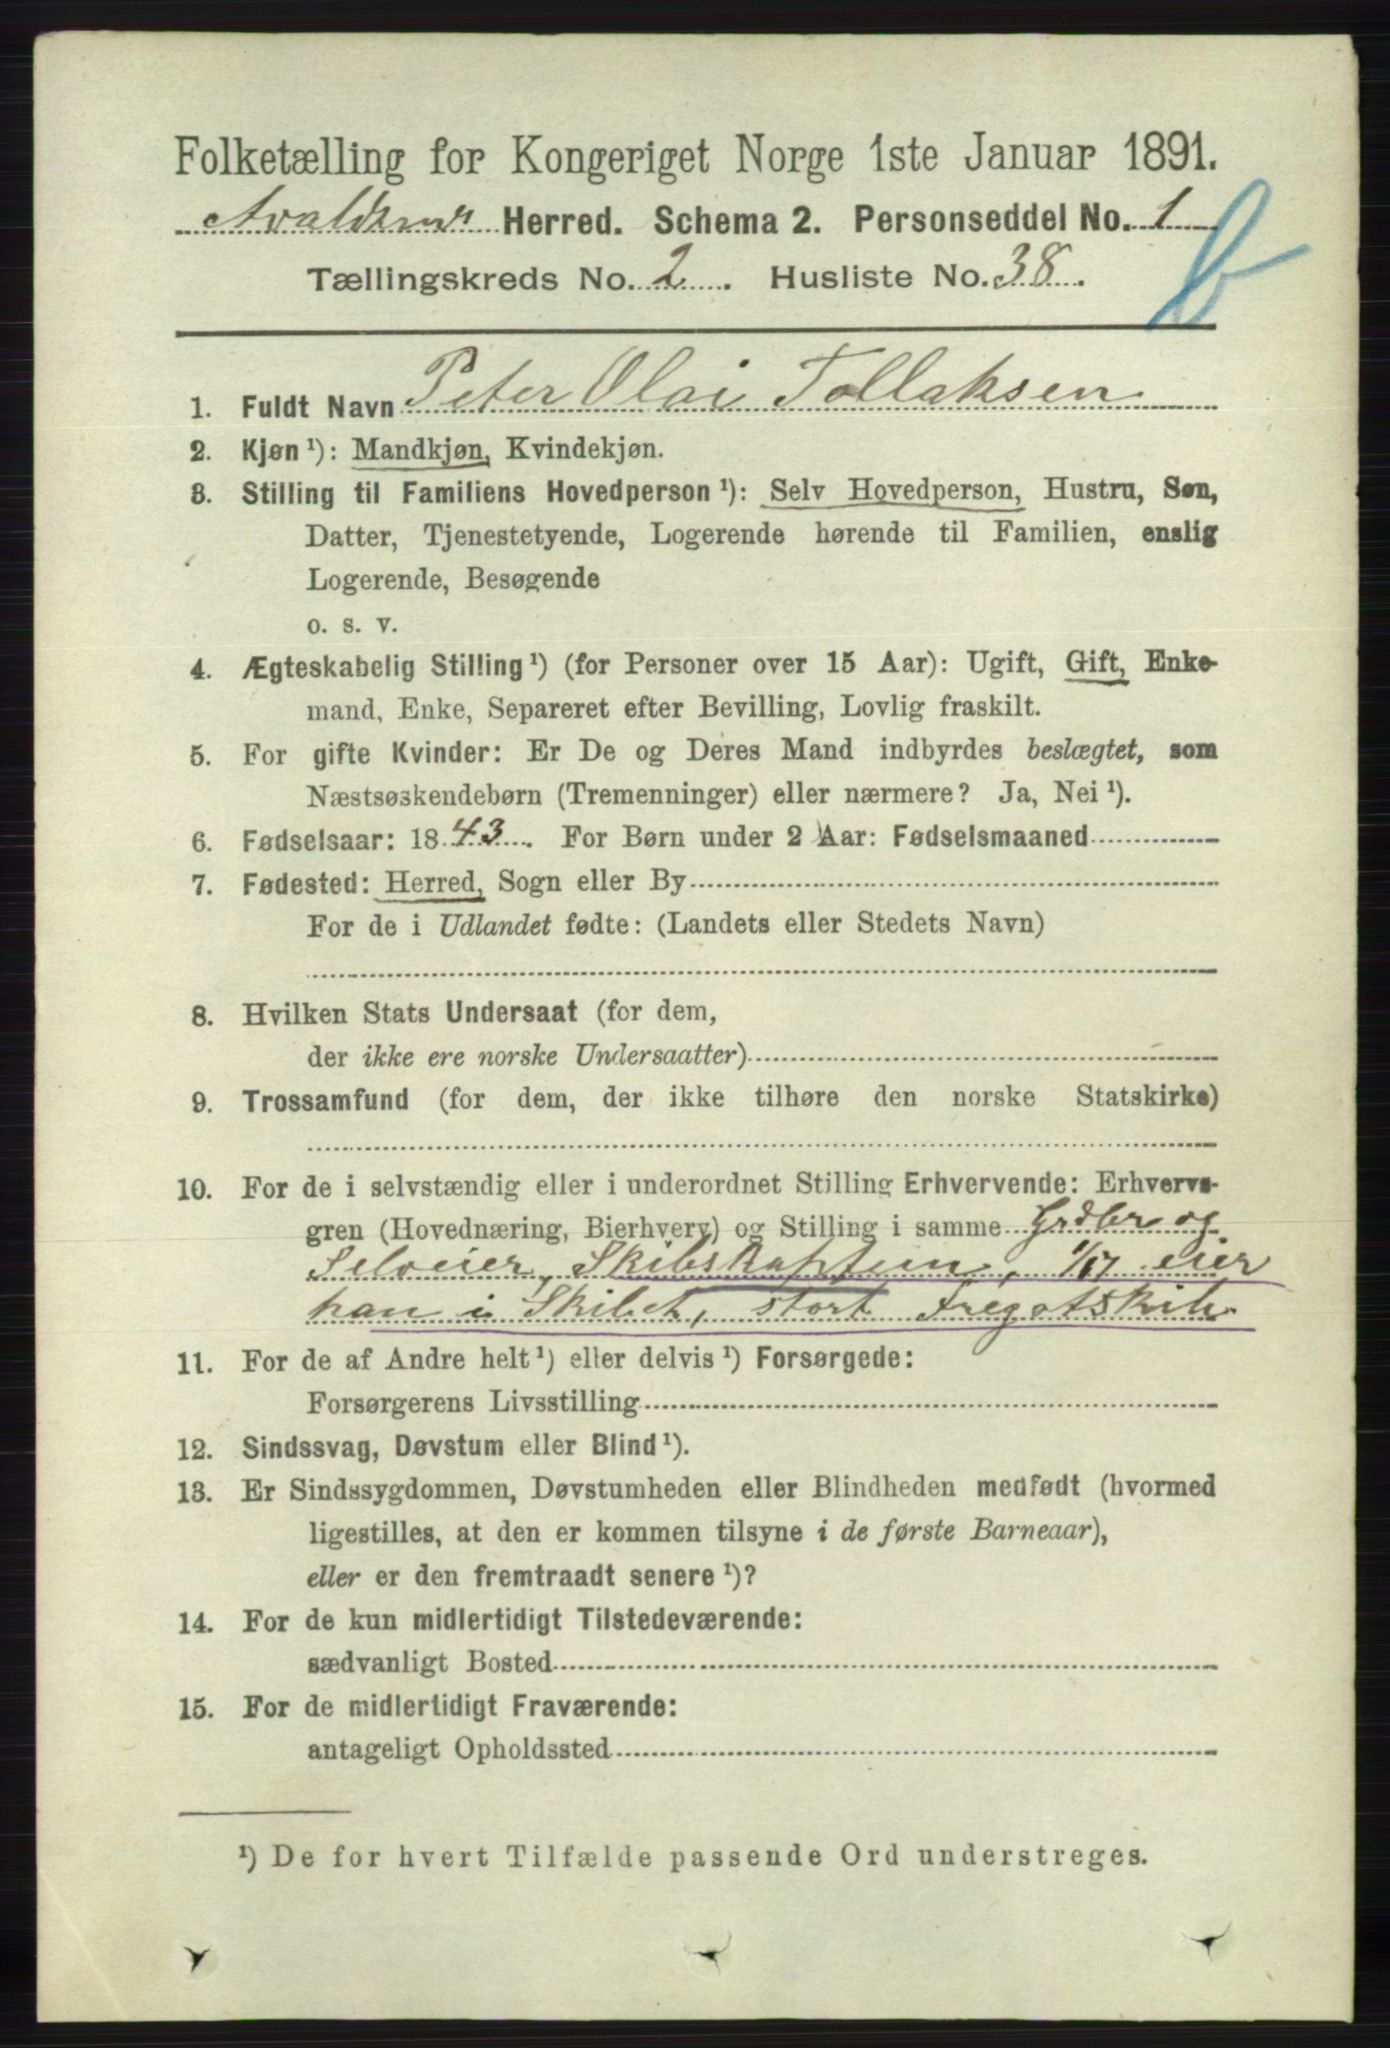 Folketælling for Kongeriget Norge 1ste Januar 1891.
Avaldsnes Herred. Schema 2. Personseddel No. 1
b
Tællingskreds No. 2. Husliste No. 38.
1. Fuldt Navn Peter Olai Tollaksen
2. Kjøn ¹): Mandkjøn, Kvindekjøn.
3. Stilling til Familiens Hovedperson ¹): Selv Hovedperson, Hustru, Søn,
Datter, Tjenestetyende, Logerende hørende til Familien, enslig
Logerende, Besøgende
o. s. v.
4. Ægteskabelig Stilling ¹) (for Personer over 15 Aar): Ugift, Gift, Enke-
mand, Enke, Separeret efter Bevilling, Lovlig fraskilt.
5. For gifte Kvinder: Er De og Deres Mand indbyrdes beslægtet, som
Næstsøskendebørn (Tremenninger) eller nærmere? Ja, Nei ¹).
6. Fødselsaar: 1843. For Børn under 2 Aar: Fødselsmaaned
7. Fødested: Herred, Sogn eller By
For de i Udlandet fødte: (Landets eller Stedets Navn)
8. Hvilken Stats Undersaat (for dem,
der ikke ere norske Undersaatter)
9. Trossamfund (for dem, der ikke tilhøre den norske Statskirke)
10. For de i selvstændig eller i underordnet Stilling Erhvervende: Erhvervs-
gren (Hovednæring, Bierhverv) og Stilling i samme Grdbr og
Selveier, Skibskaptein, 1/17 eier
han i Skibet, stort Fregatskib
11. For de af Andre helt ¹) eller delvis ¹) Forsørgede:
Forsørgerens Livsstilling
12. Sindssvag, Døvstum eller Blind ¹).
13. Er Sindssygdommen, Døvstumheden eller Blindheden medfødt (hvormed
ligestilles, at den er kommen tilsyne i de første Barneaar),
eller er den fremtraadt senere ¹)?
14. For de kun midlertidigt Tilstedeværende:
sædvanligt Bosted
15. For de midlertidigt Fraværende:
antageligt Opholdssted
¹) De for hvert Tilfælde passende Ord understreges.